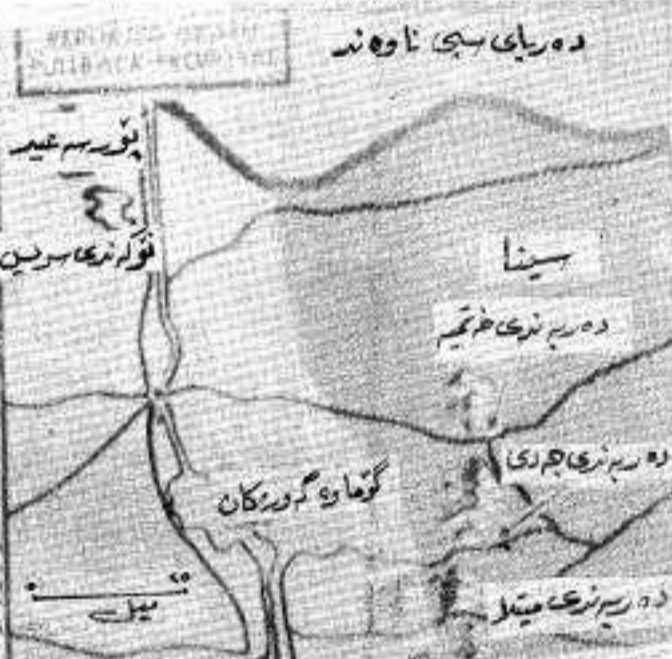 دەریای سپی ناوەند
پۆرسەعید
نۆکەندی سویس
سینا
دەربەندی خەتمیە
دەربەندی جدی
گۆماوە گەورەکان
دەربەندی میتلا
٠ ٢٥
میل